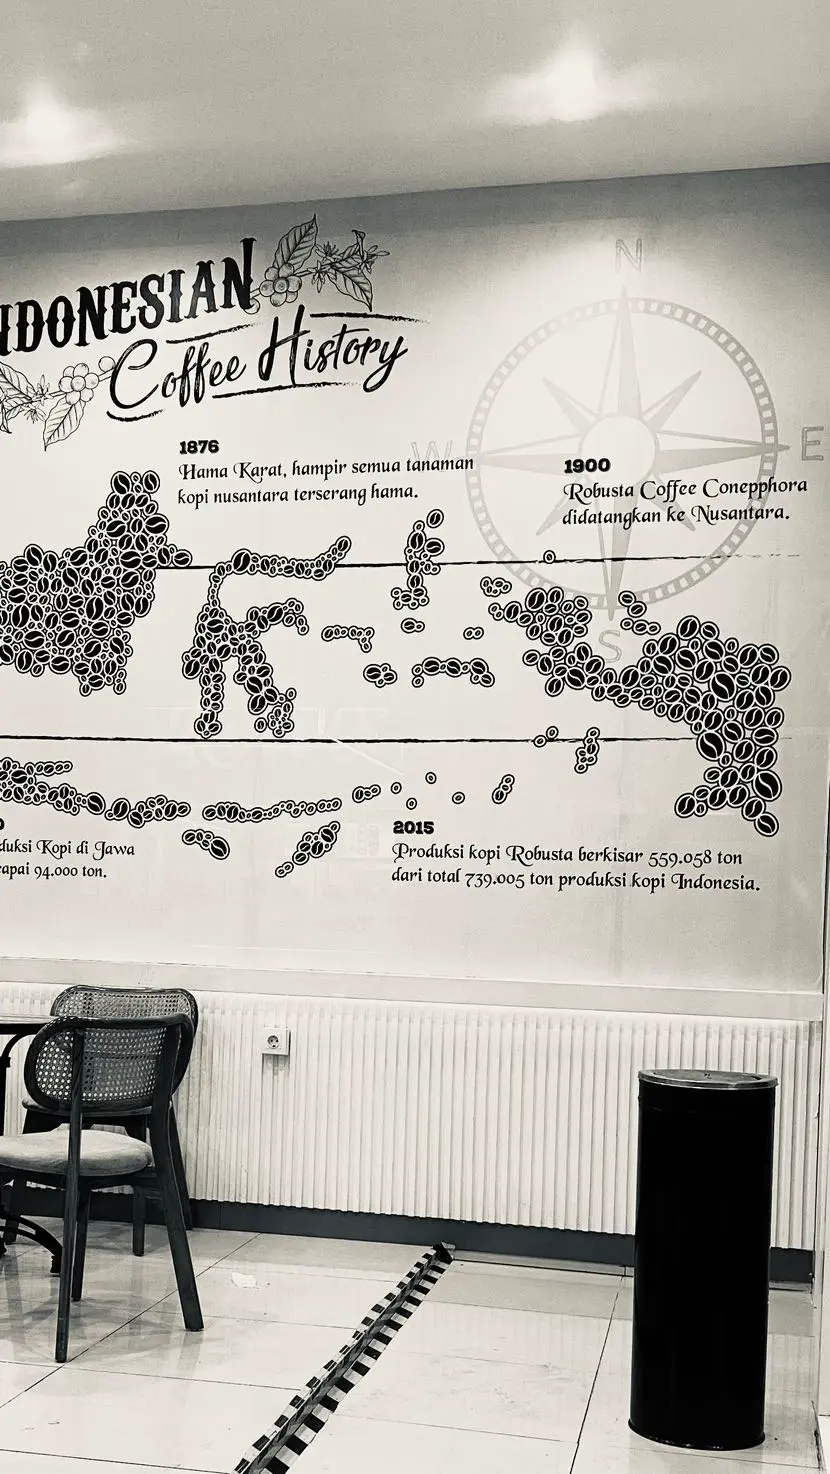 NDONESIAN
Coffee History
N
W
E
S
1876
Hama Karat, hampir semua tanaman
kopi nusantara terserang hama.
1900
Robusta Coffee Conepphora
didatangkan ke Nusantara.
0
duksi Kopi di Jawa
capai 94.000 ton.
2015
Produksi kopi Robusta berkisar 559.058 ton
dari total 739.005 ton produksi kopi Indonesia.